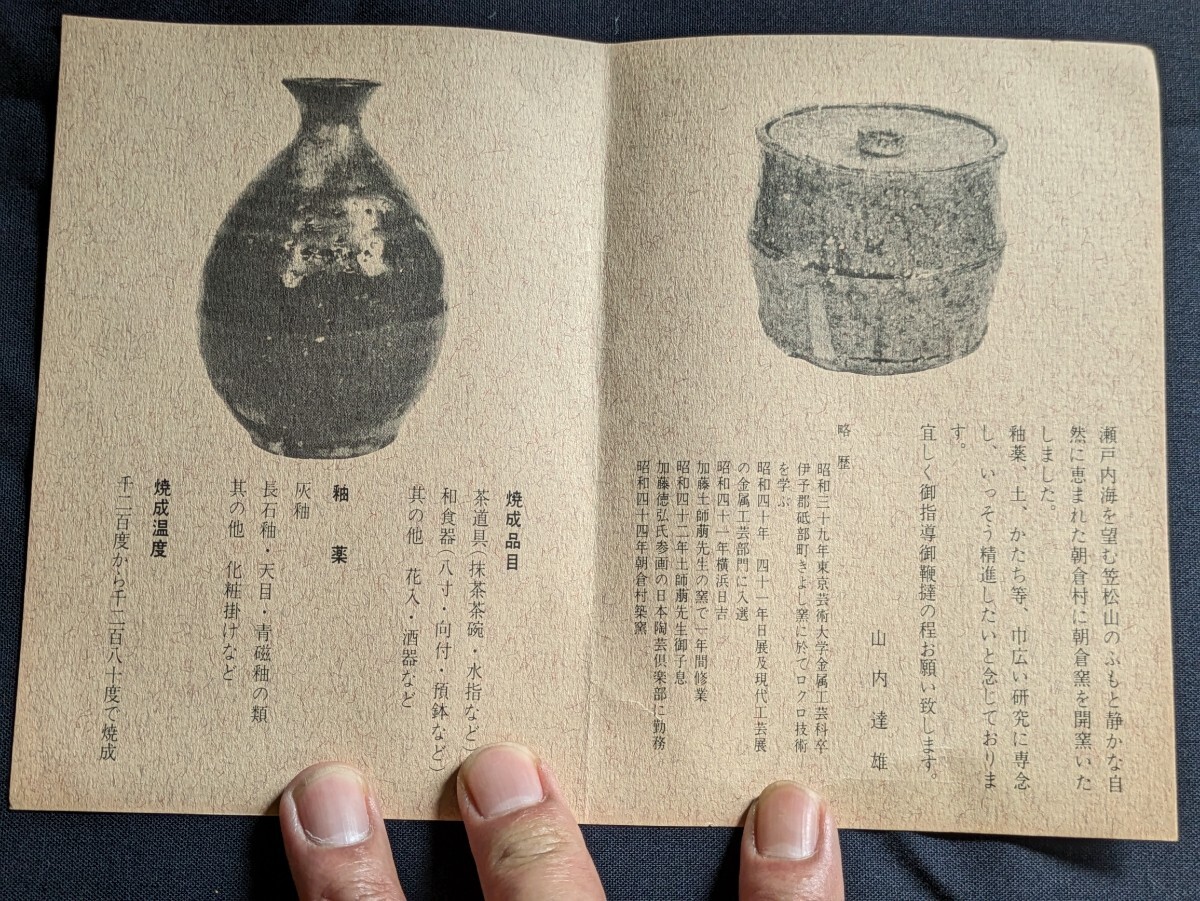 瀬戸内海を望む笠松山のふもと静かな自
然に恵まれた朝倉村に朝倉窯を開窯いた
しました。
釉薬、土、かたち等、巾広い研究に専念
し、いっそう精進したいと念じておりま
す。
宜しく御指導御鞭撻の程お願い致します。
山内達雄
略歴
昭和三十九年東京芸術大学金属工芸科卒
伊予郡砥部町きよし窯に於てロクロ技術
を学ぶ
昭和四十年 四十一年日展及現代工芸展
の金属工芸部門に入選
昭和四十一年横浜日吉
加藤土師萠先生の窯で一年間修業
昭和四十二年土師萠先生御子息
加藤徳弘氏参画の日本陶芸倶楽部に勤務
昭和四十四年朝倉村築窯
焼成品目
茶道具(抹茶茶碗・水指など)
和食器(八寸・向付・預鉢など)
其の他 花入・酒器など
釉薬
灰釉
長石釉・天目・青磁釉の類
其の他 化粧掛けなど
焼成温度
千二百度から千二百八十度で焼成